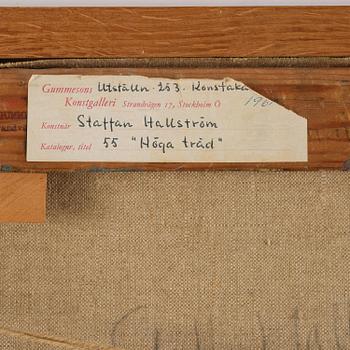 Gummesons Utställn. 253. Konstaka
Konstgalleri Strandvägen 17, Stockholm Ö 196
Konstnär Staffan Hallström
Katalognr, titel 55 "Höga träd"